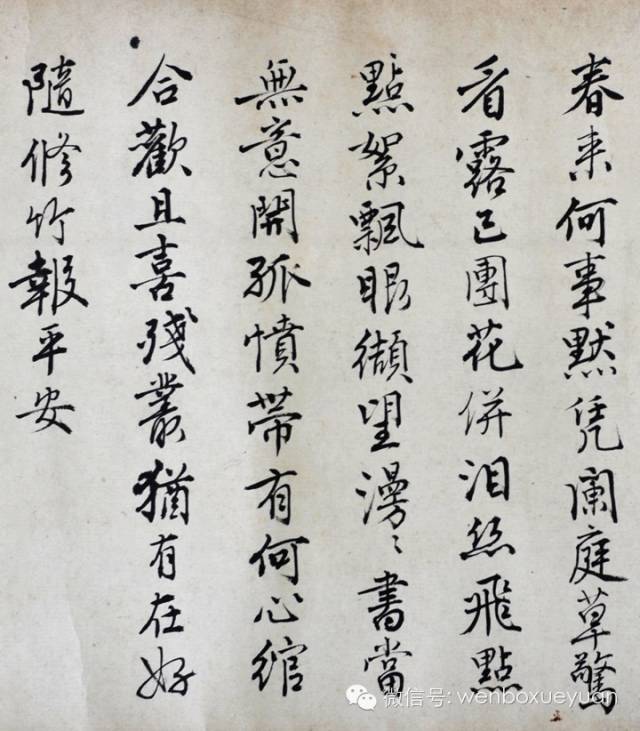 春来何事黙凭阑庭草驚
看露已團花併泪絲飛點
點〻絮飄眼纈望漫〻書當
無意開孤憤帶有何心綰
合歡且喜殘叢猶有在好
隨修竹報平安
微信号: wenboxueyuan